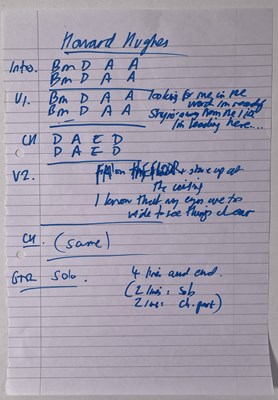 Howard Hughes
Intro. Bm D A A
Bm D A A
V1. Bm D A A looking for me, in the
Bm D A A word I'm ready
Staying away from the
I'm leading here...
CH D A E D
D A E D
V2. Fall on THE FLOOR + stare up at
the ceiling
I know that my eyes are too
wide to see things clear
CH (same)
GTR Solo. 4 lines and end.
(2 lines: solo
2 lines: ch. part)